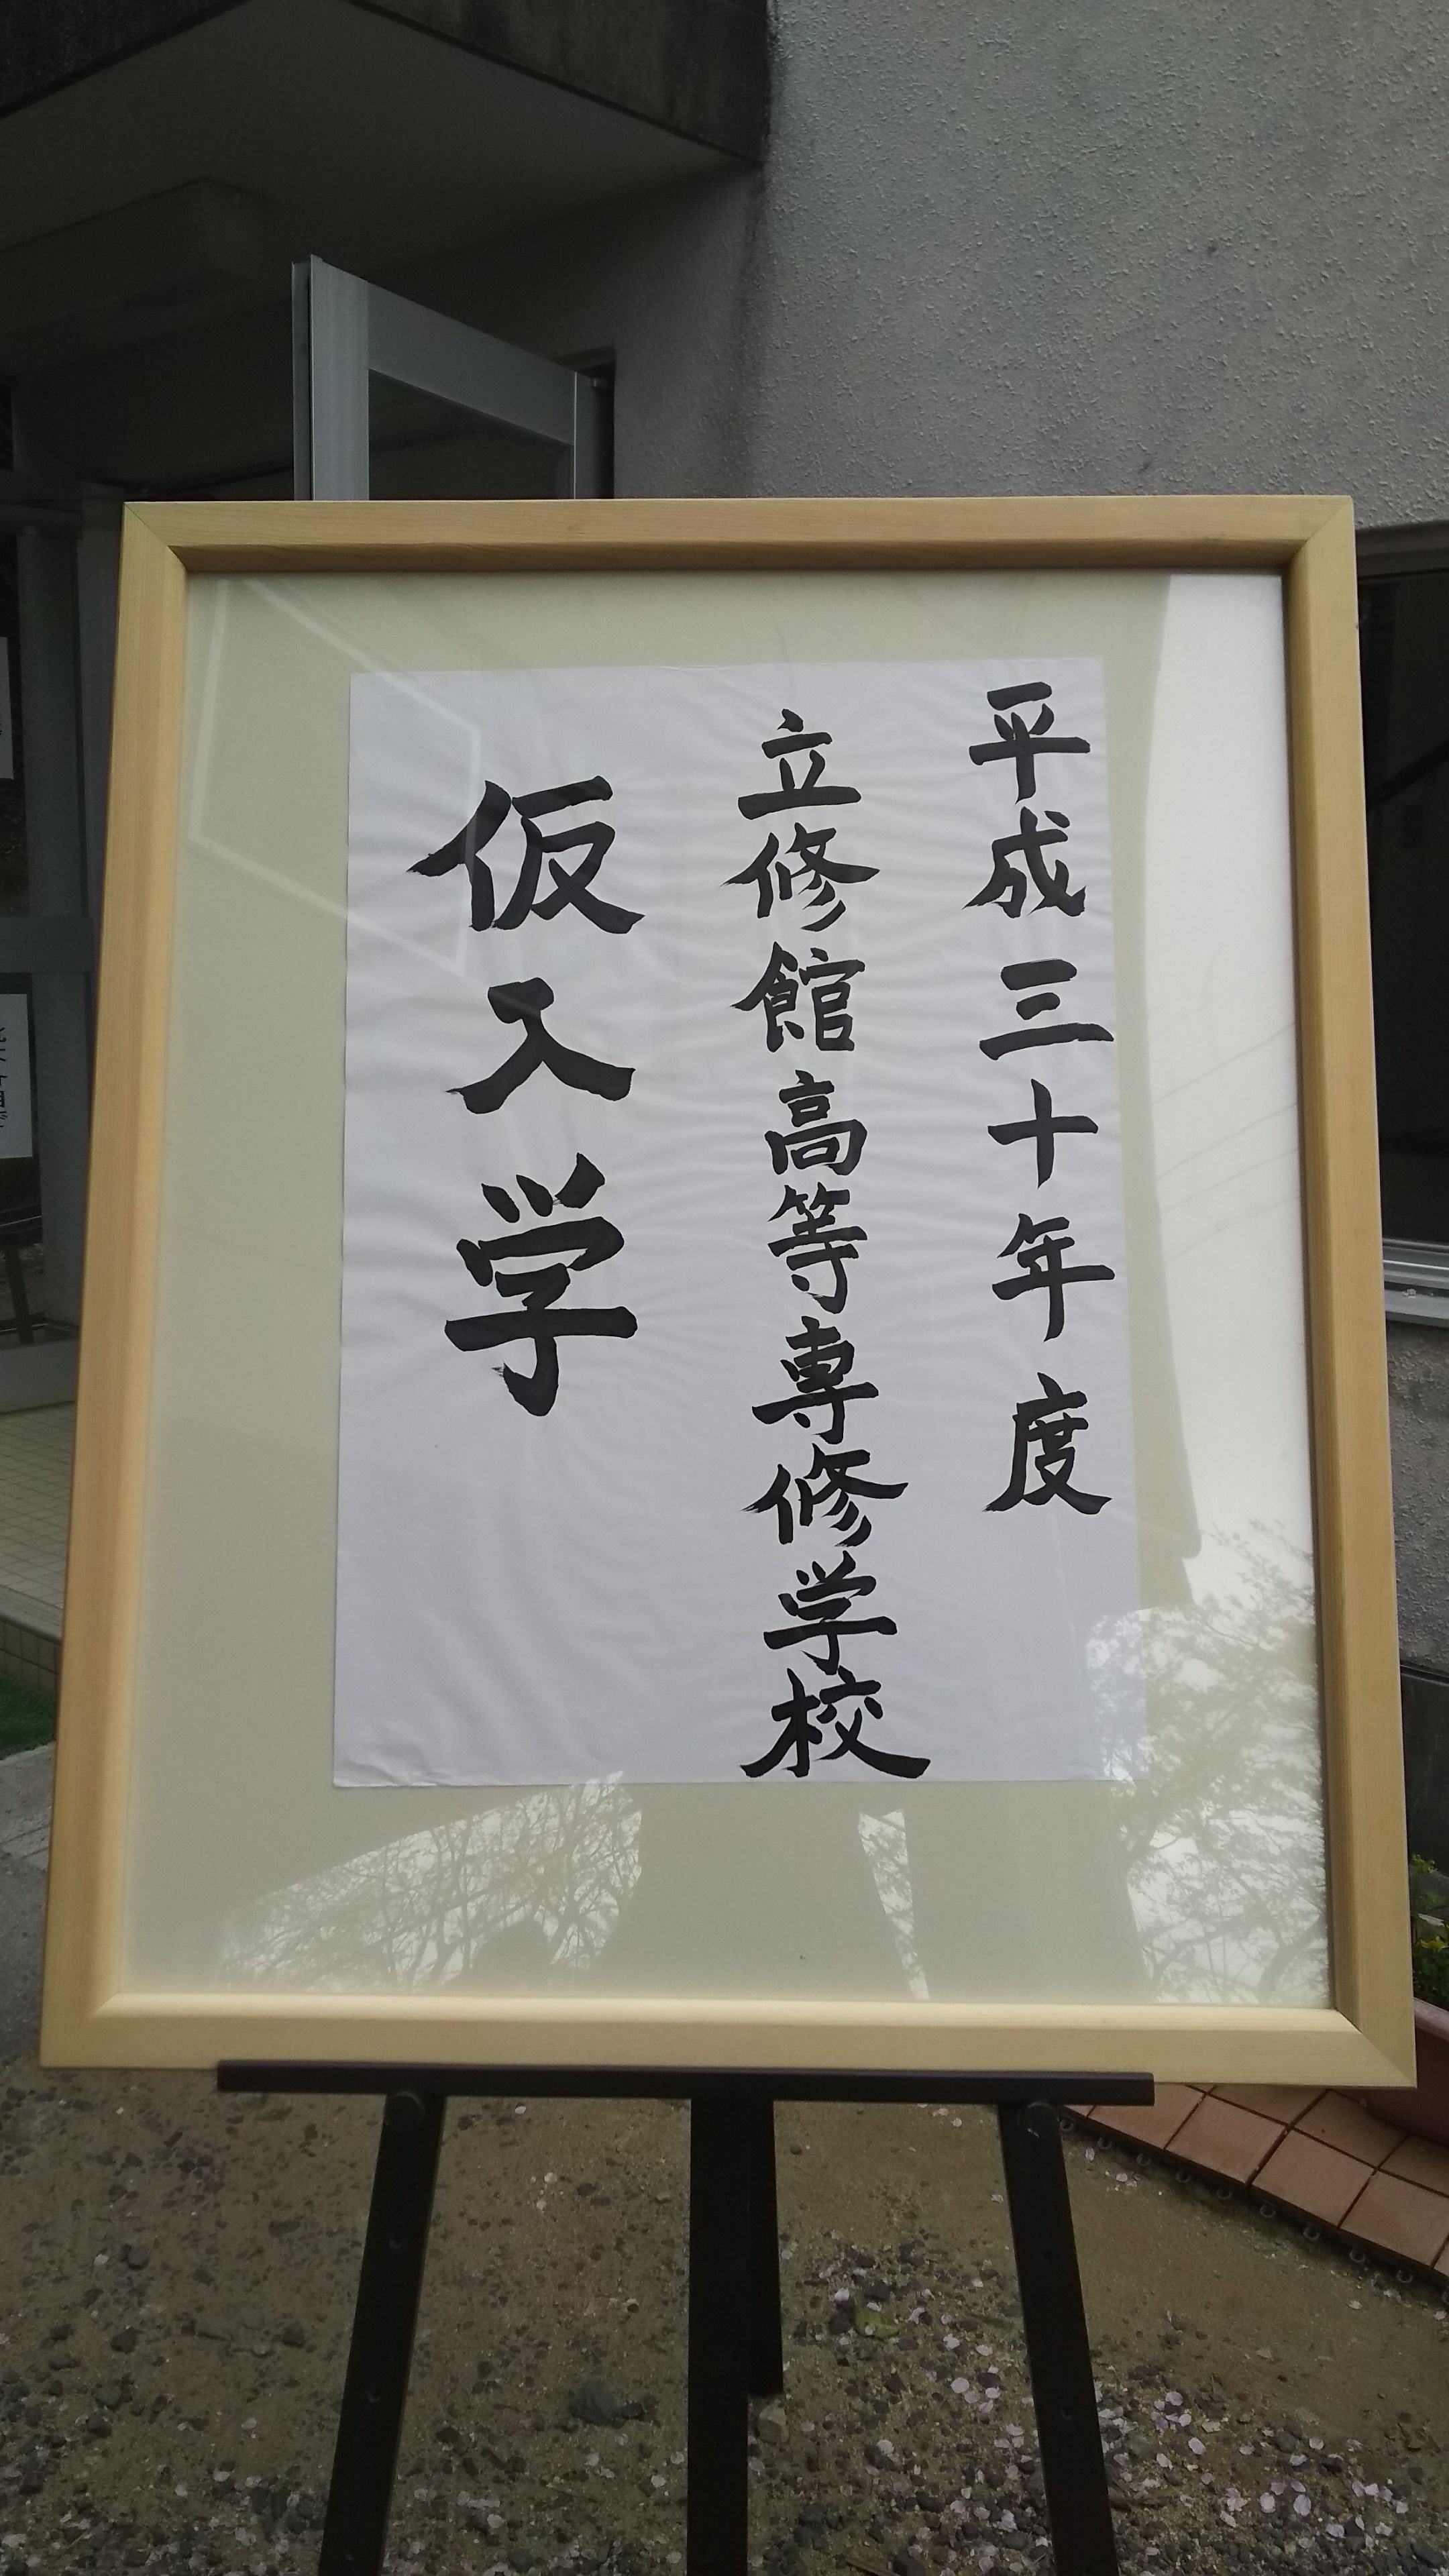 平成三十年度
立修館高等専修学校
仮入学